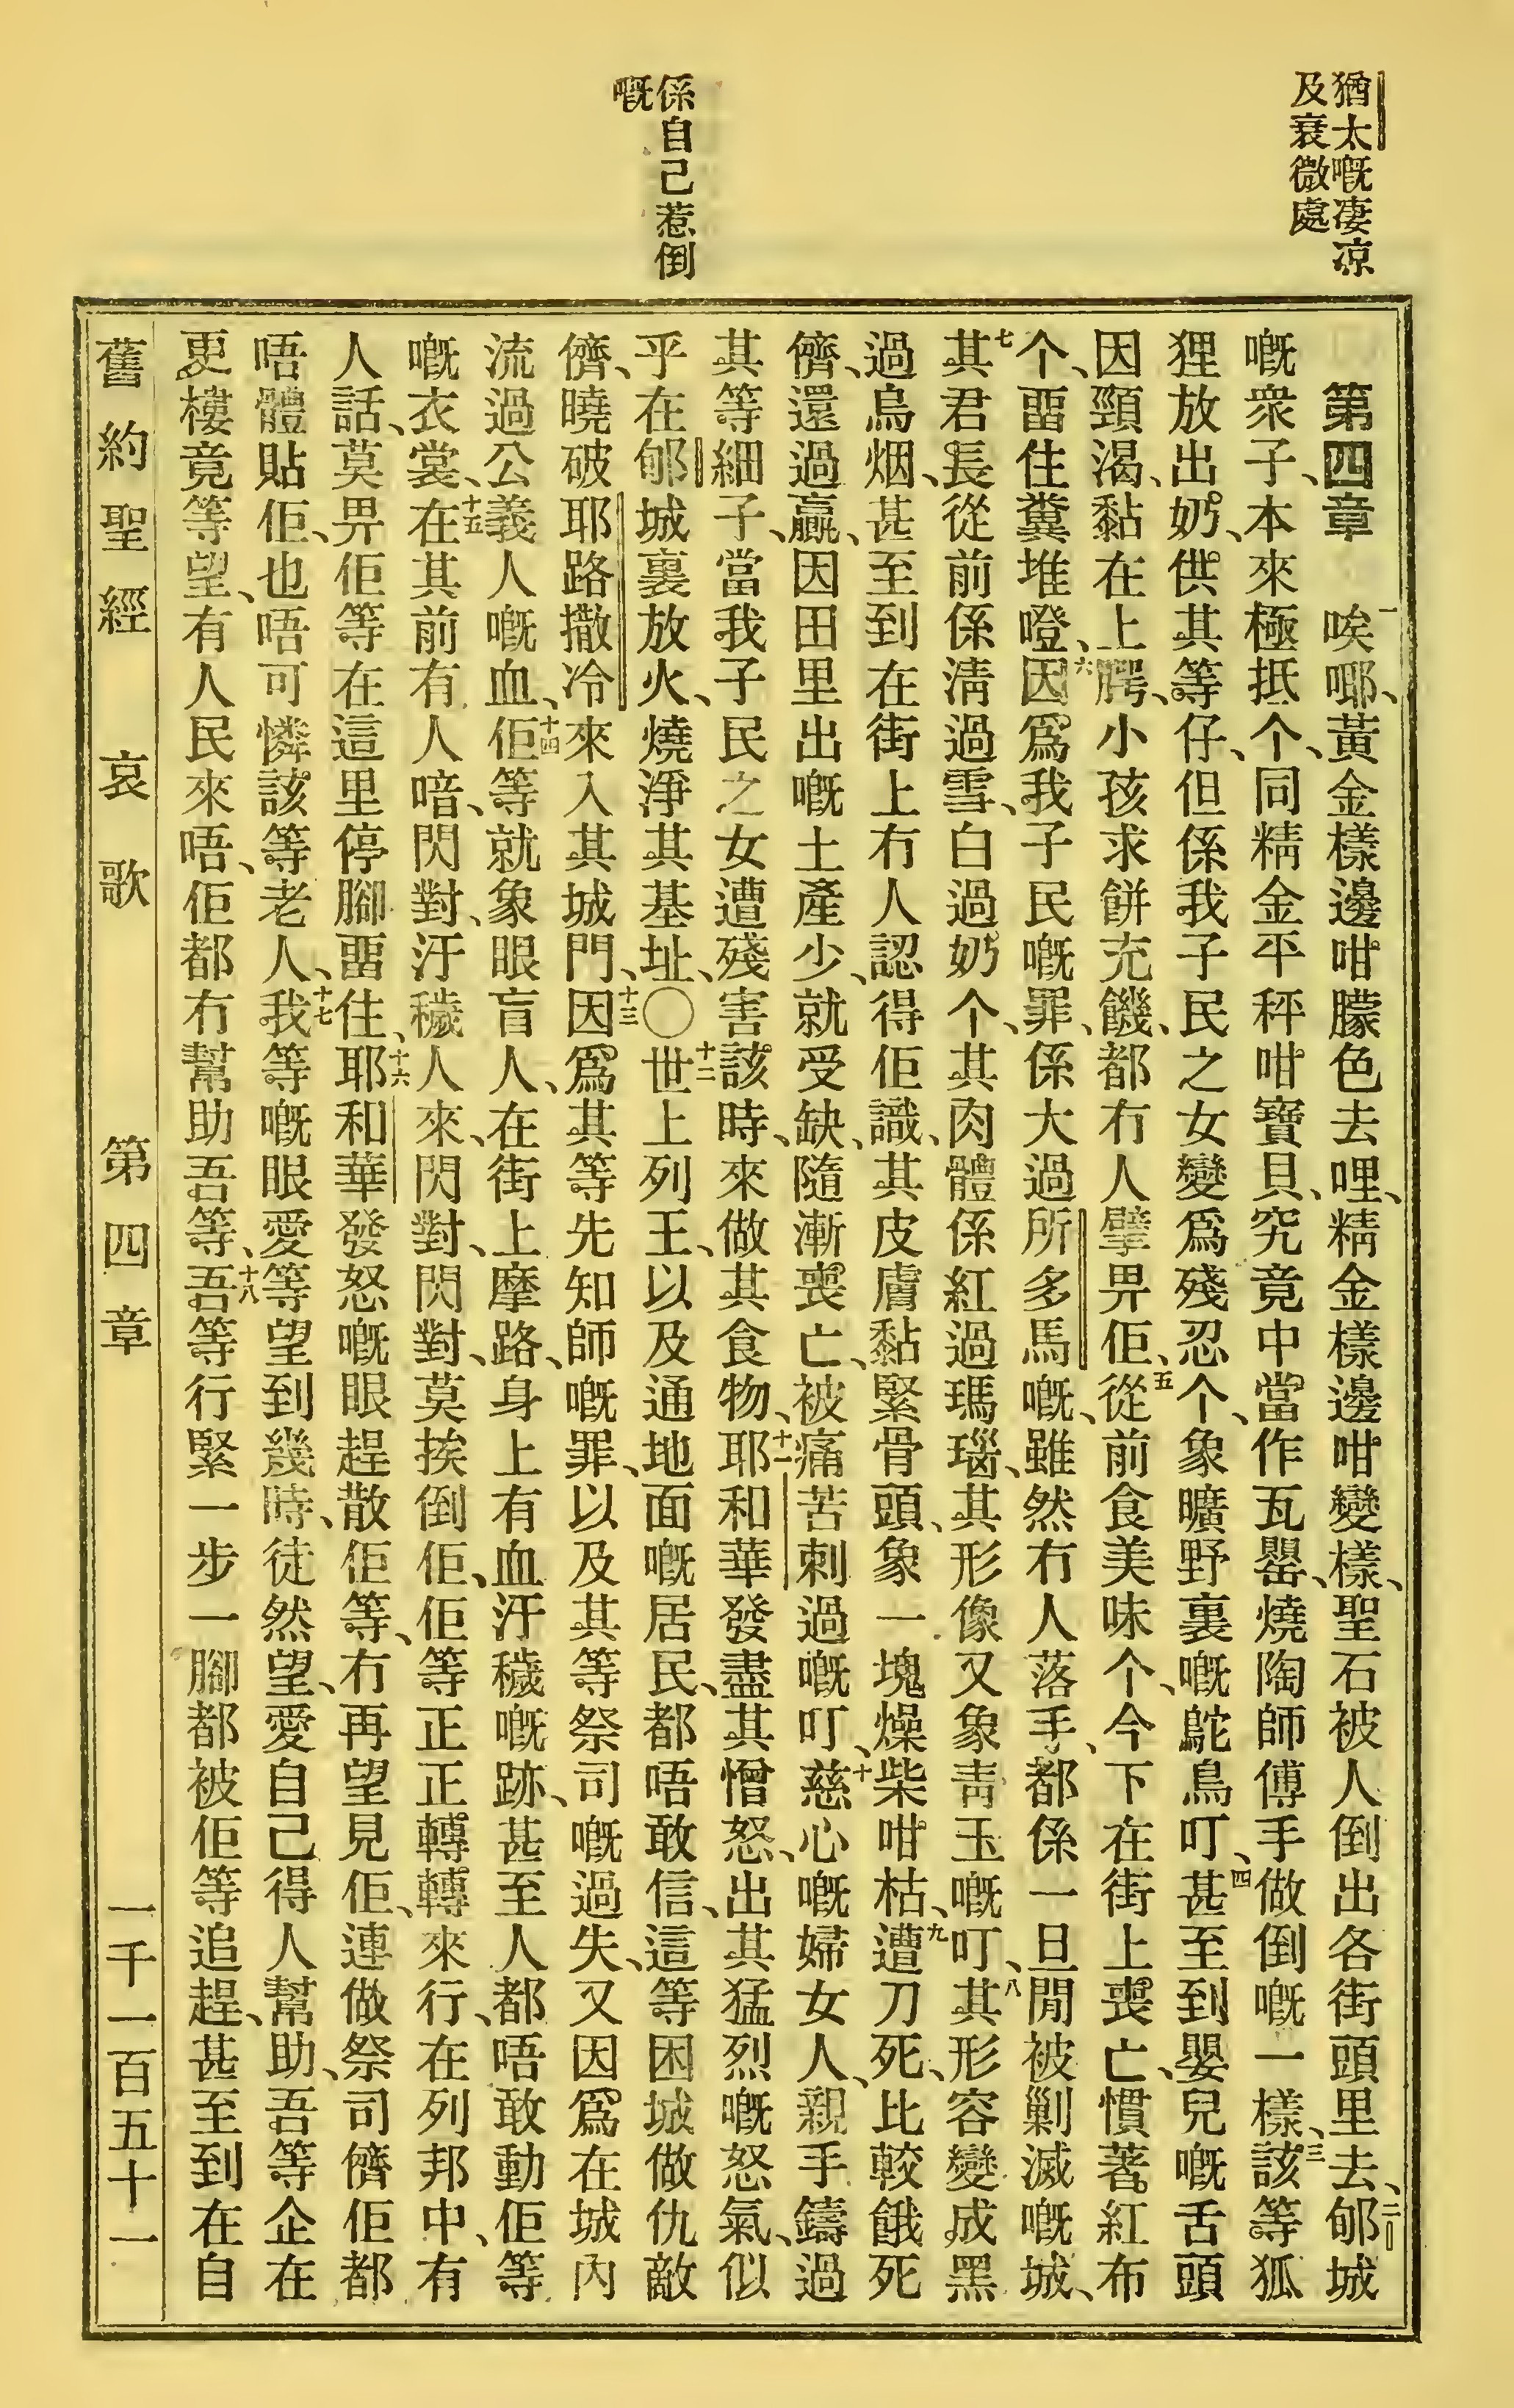 猶太嘅凄凉
及衰微處
係自己惹倒
嘅
第四章 一唉㖿、黃金樣邊咁朦色去哩、精金樣邊咁變樣、聖石被人倒出各街頭里去、二郇城
嘅衆子、本來極抵个、同精金平秤咁寶貝、究竟中當作瓦罌、燒陶師傅手做倒嘅一樣、三該等狐
狸放出奶、供其等仔、但係我子民之女變爲殘忍个、象曠野裏嘅鴕鳥叮、四甚至到嬰兒嘅舌頭
因頸渴、黏在上腭、小孩求餅充饑、都冇人擘畀佢、五從前食美味个、今下在街上喪亡、慣著紅布
个、畱住糞堆嶝、六因爲我子民嘅罪、係大過所多馬嘅、雖然冇人落手、都係一旦閒被剿滅嘅城、
七其君長從前係淸過雪、白過奶个、其肉體係紅過瑪瑙、其形像又象靑玉嘅叮、八其形容變成黑
過烏烟、甚至到在街上冇人認得佢識、其皮膚黏緊骨頭、象一塊燥柴咁枯、九遭刀死、比較餓死
儕、還過贏、因田里出嘅土產少、就受缺、隨漸喪亡、被痛苦刺過嘅叮、十慈心嘅婦女人、親手鑄過
其等細子、當我子民之女遭殘害該時、來做其食物、十一耶和華發盡其憎怒、出其猛烈嘅怒氣、似
乎在郇城裏放火、燒淨其基址、〇十二世上列王、以及通地面嘅居民、都唔敢信、這等困城做仇敵
儕、曉破耶路撒冷來入其城門、十三因爲其等先知師嘅罪、以及其等祭司嘅過失、又因爲在城內
流過公義人嘅血、十四佢等就象眼盲人、在街上摩路、身上有血汙穢嘅跡、甚至人都唔敢動佢等
嘅衣裳、十五在其前有人喑、閃對、汙穢人來、閃對、閃對、莫挨倒佢、佢等正正轉轉來行、在列邦中、有
人話、莫畀佢等在這里停腳畱住、十六耶和華發怒嘅眼趕散佢等、冇再望見佢、連做祭司儕佢都
唔體貼佢、也唔可憐該等老人、十七我等嘅眼愛等望到幾時、徒然望、愛自己得人幫助、吾等企在
更樓竟等望、有人民來唔、佢都冇幫助吾等、十八吾等行緊一步一腳都被佢等追趕、甚至到在自
舊約聖經 哀歌 第四章 一千一百五十一